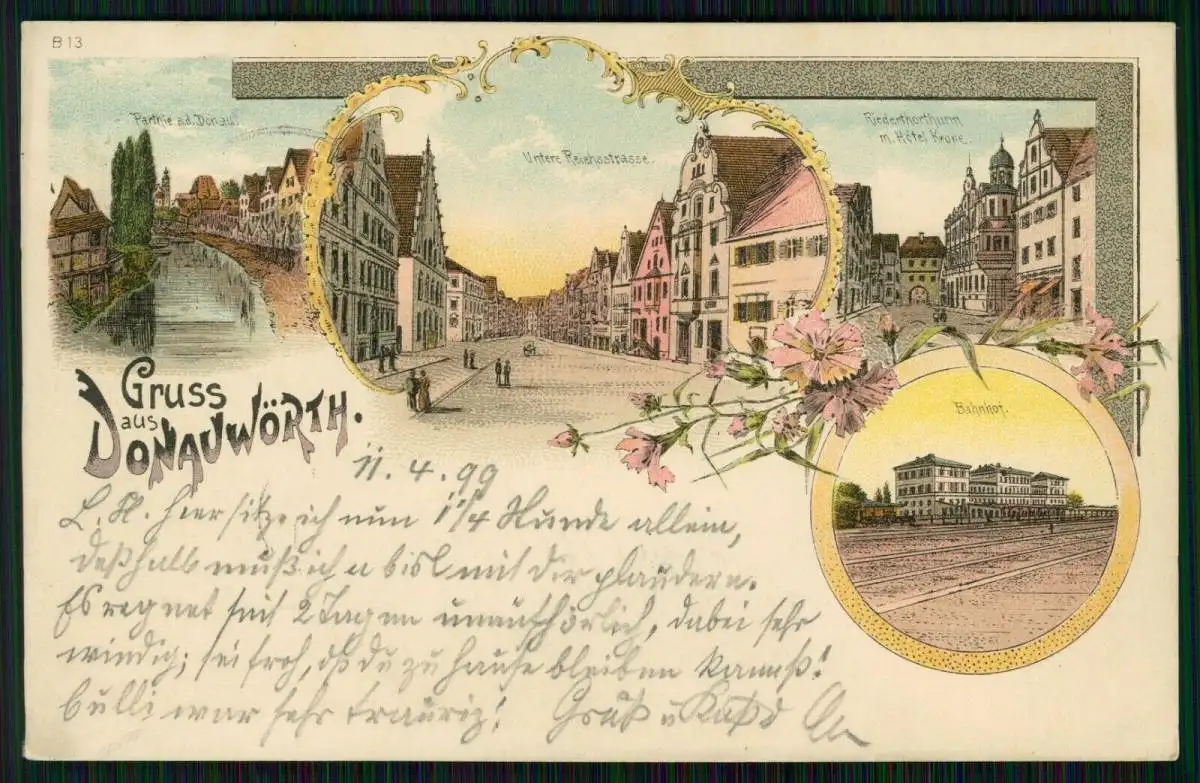 B 13
Parthie a.d. Donau.
Untere Reichsstrasse.
Riederthorthurm
m. Hôtel Krone.
Gruss
aus
Donauwörth.
Bahnhof.
11. 4. 99
L. R. hier sitze ich nun 1 1/4 Stunde allein,
deßhalb muß ich a bisl mit dir plaudern.
Es regnet seit 2 Tagen unaufhörlich, dabei sehr
windig; sei froh, dß du zu hause bleiben kannst!
bulli war sehr traurig! Gruß u